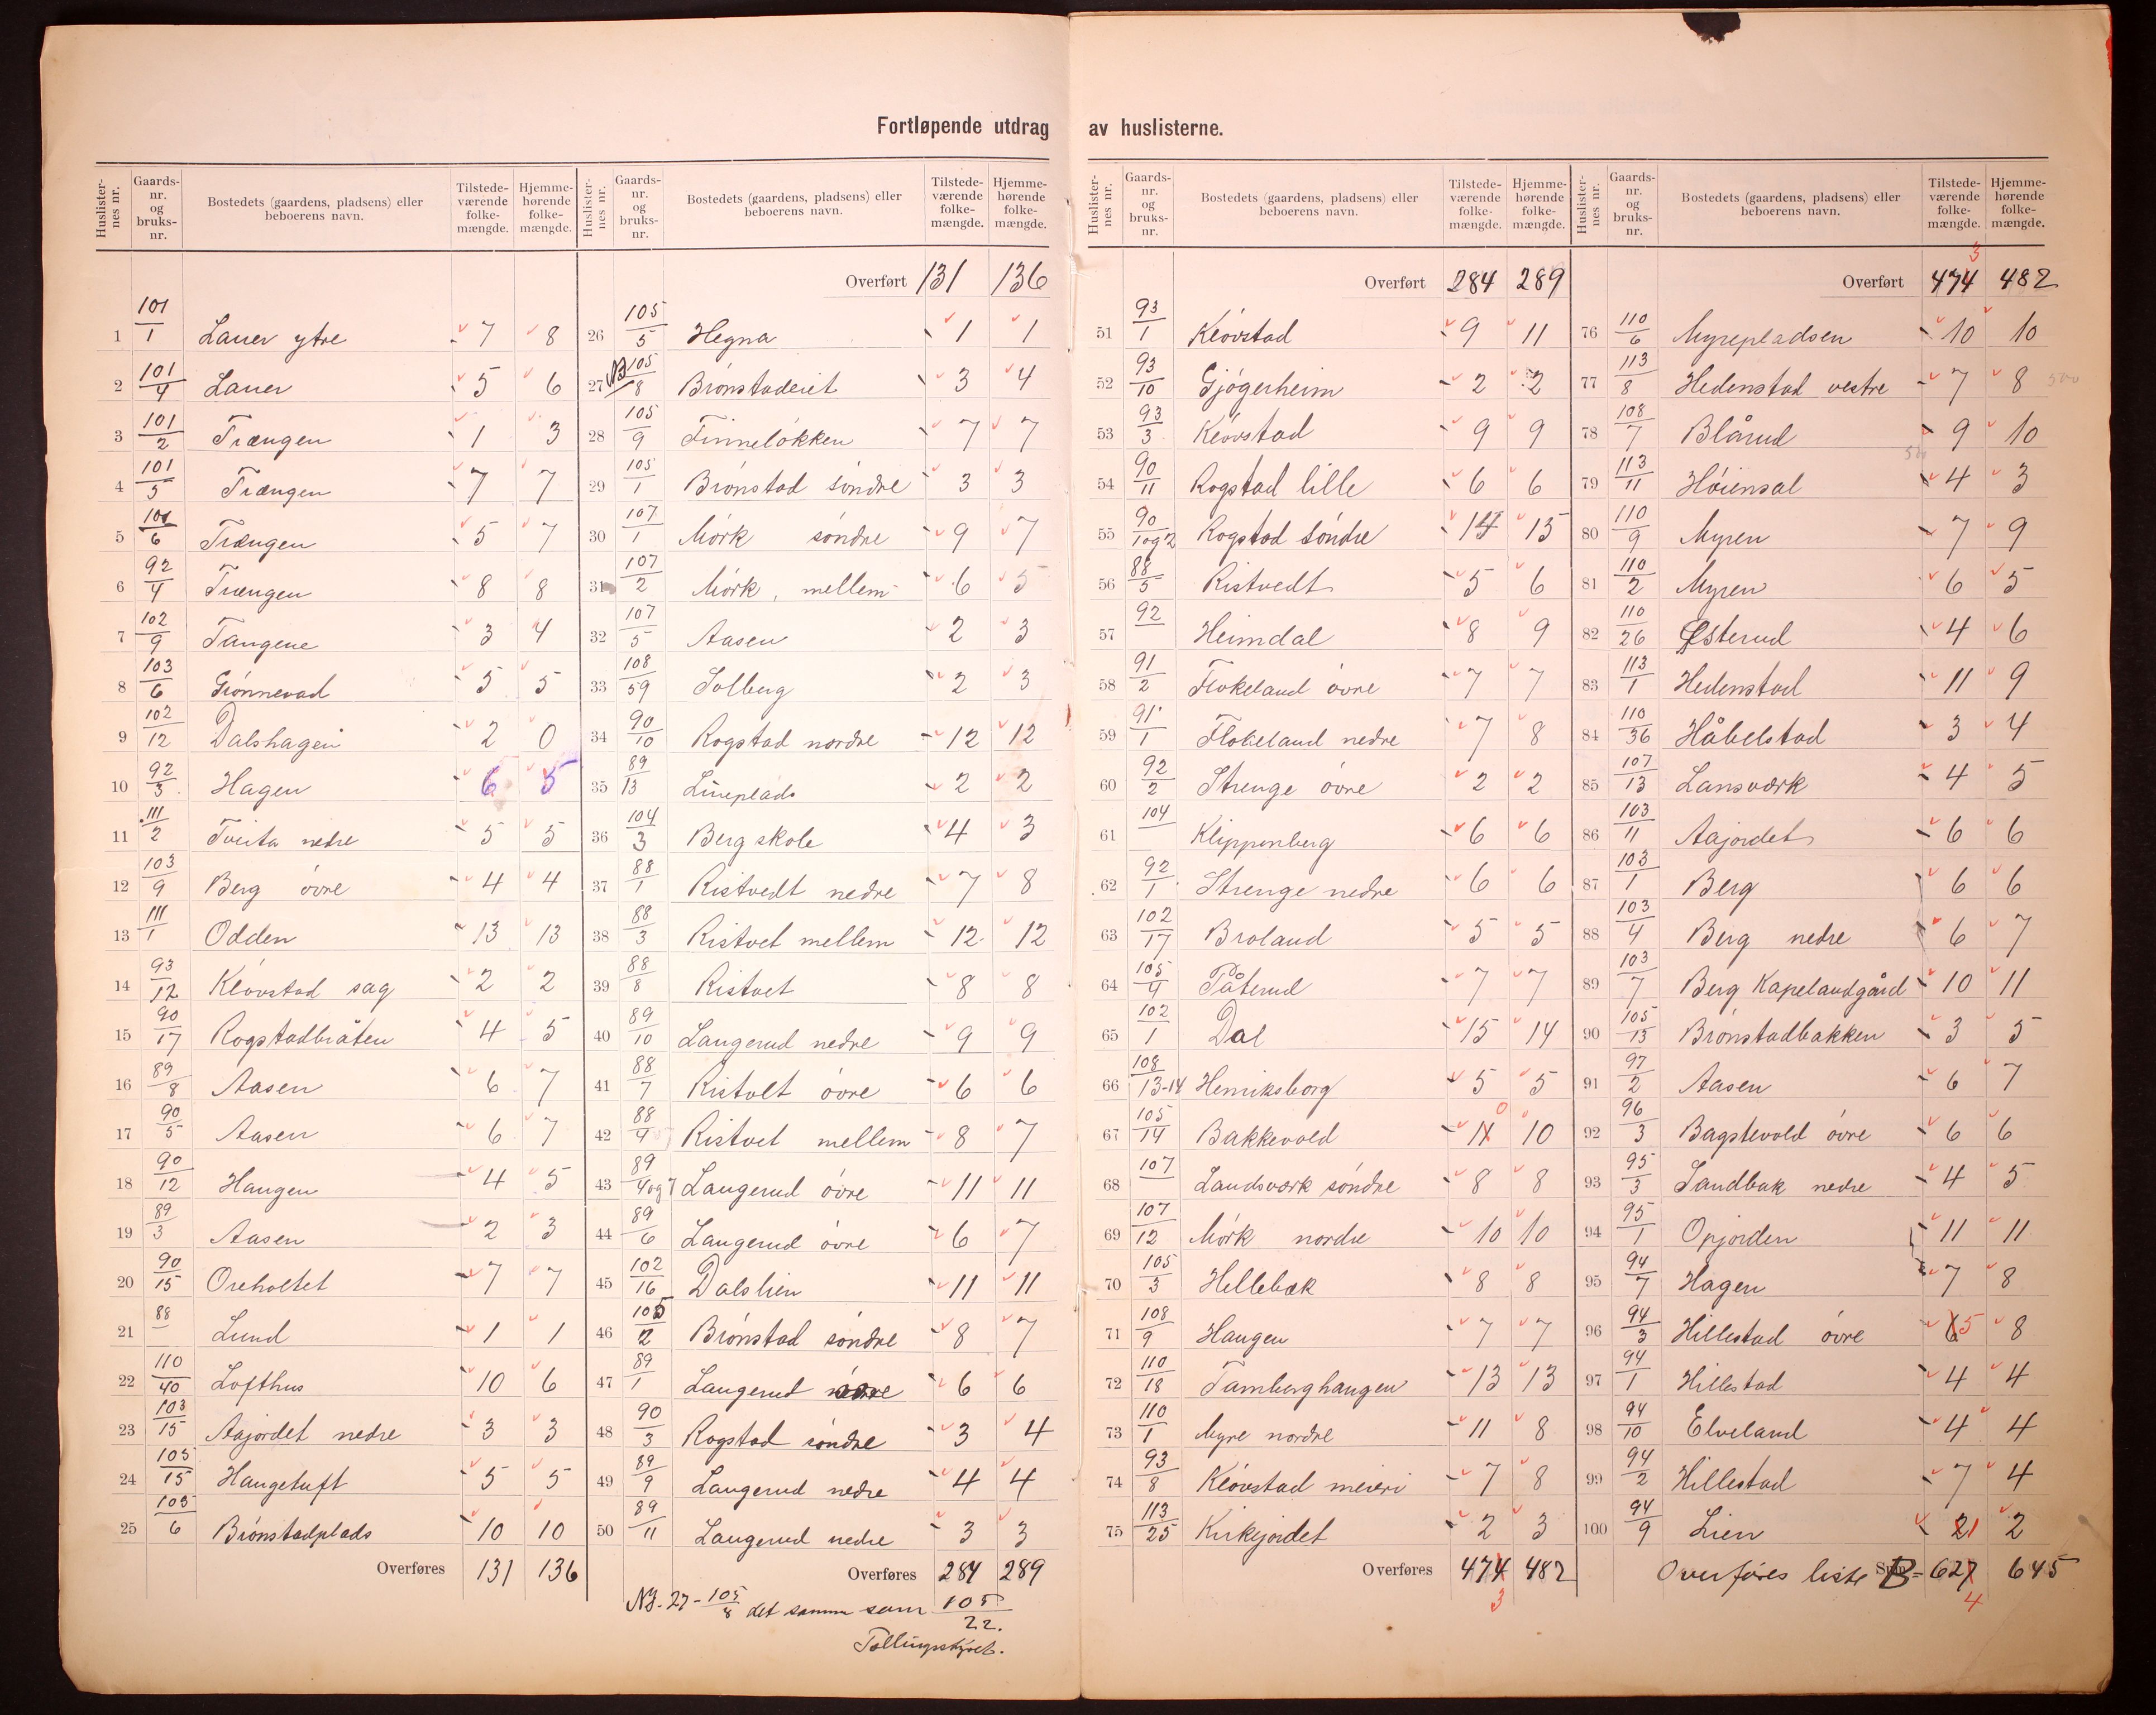 Fortløpende utdrag av huslisterne.
Huslister-nes nr. Gaards-nr. og bruks-nr. Bostedets (gaardens, pladsens) eller beboerens navn. Tilstede-værende folke-mængde. Hjemme-hørende folke-mængde.
1 101/1 Lauer ytre 7 8
2 101/4 Lauer 5 6
3 101/2 Trængen 1 3
4 101/5 Trængen 7 7
5 101/6 Trængen 5 7
6 92/4 Trængen 8 8
7 102/9 Tangene 3 4
8 103/6 Grönnevad 5 5
9 102/12 Dalshagen 2 0
10 92/3 Hagen 6 5
11 111/2 Tveita nedre 5 5
12 103/9 Berg övre 4 4
13 111/1 Odden 13 13
14 93/12 Klövstad sag 2 2
15 90/17 Rogstadbråten 4 5
16 89/8 Aasen 6 7
17 90/5 Aasen 6 7
18 90/12 Haugen 4 5
19 89/3 Aasen 2 3
20 90/15 Oreholtet 7 7
21 88 Lund 1 1
22 110/40 Lofthus 10 6
23 103/15 Aajordet nedre 3 3
24 105/15 Haugetuft 5 5
25 105/6 Brönstadplads 10 10
Overføres 131 136
Huslister-nes nr. Gaards-nr. og bruks-nr. Bostedets (gaardens, pladsens) eller beboerens navn. Tilstede-værende folke-mængde. Hjemme-hørende folke-mængde.
Overført 131 136
26 105/5 Hegna 1 1
27 NB 105/8 Brönstadeiet 3 4
28 105/9 Finnelökken 7 7
29 105/1 Brönstad söndre 3 3
30 107/1 Mörk söndre 9 7
31 107/2 Mörk, mellem 6 5
32 107/5 Aasen 2 3
33 108/59 Solberg 2 3
34 90/10 Rogstad nordre 12 12
35 89/13 Lineplads 2 2
36 104/3 Berg skole 4 3
37 88/1 Ristvedt nedre 7 8
38 88/3 Ristvet mellem 12 12
39 88/8 Ristvet 8 8
40 89/10 Langerud nedre 9 9
41 88/7 Ristvet övre 6 6
42 88/4 Ristvet mellem 8 7
43 89/4og7 Langerud övre 11 11
44 89/6 Langerud övre 6 7
45 102/16 Dalslien 11 11
46 105/2 Brönstad söndre 8 7
47 89/1 Langerud övre 6 6
48 90/3 Rogstad söndre 3 4
49 89/9 Langerud nedre 4 4
50 89/11 Langerud nedre 3 3
Overføres 284 289
NB. 27 - 105/8 det samme som 105/22.
Tællingsstyret.
Huslister-nes nr. Gaards-nr. og bruks-nr. Bostedets (gaardens, pladsens) eller beboerens navn. Tilstede-værende folke-mængde. Hjemme-hørende folke-mængde.
Overført 284 289
51 93/1 Klövstad 9 11
52 93/10 Gjögerheim 2 2
53 93/3 Klövstad 9 9
54 90/11 Rogstad lille 6 6
55 90/1og2 Rogstad söndre 14 15
56 88/5 Ristvedt 5 6
57 92 Heimdal 8 9
58 91/2 Flokeland övre 7 7
59 91/1 Flokeland nedre 7 8
60 92/2 Strenge övre 2 2
61 104 Klippenberg 6 6
62 92/1 Strenge nedre 6 6
63 102/17 Broland 5 5
64 105/4 Påterud 7 7
65 102/1 Dal 15 14
66 108/13-14 Henriksborg 5 5
67 105/14 Bakkevold 11 0 10
68 107 Landsværk söndre 8 8
69 107/12 Mörk nordre 10 10
70 105/3 Hillebæk 8 8
71 108/9 Haugen 7 7
72 110/18 Tamberghaugen 13 13
73 110/1 Myre nordre 11 8
74 93/8 Klövstad meieri 7 8
75 113/25 Kirkejordet 2 3
Overføres 474 482
3
Huslister-nes nr. Gaards-nr. og bruks-nr. Bostedets (gaardens, pladsens) eller beboerens navn. Tilstede-værende folke-mængde. Hjemme-hørende folke-mængde.
3
Overført 474 482
76 110/6 Myrepladsen 10 10
77 113/8 Hedenstad vestre 7 8
78 108/7 Blårud 9 10
79 113/11 Höiensal 4 3
80 110/9 Myren 7 9
81 110/2 Myren 6 5
82 110/26 Østerud 4 6
83 113/1 Hedenstad 11 9
84 110/36 Håbelstad 3 4
85 107/13 Lansværk 4 5
86 103/11 Aajordet 6 6
87 103/1 Berg 6 6
88 103/4 Berg nedre 6 7
89 103/7 Berg Kapelandgård 10 11
90 105/13 Brönstadbakken 3 5
91 97/2 Aasen 6 7
92 96/3 Bagstevold övre 6 6
93 95/3 Sandbak nedre 4 5
94 95/1 Opjorden 11 11
95 94/7 Hagen 7 8
96 94/3 Hillestad övre 6 5 8
97 94/1 Hillestad 4 4
98 94/10 Elveland 4 4
99 94/2 Hillestad 7 4
100 94/9 Lien 2 1 2
Overføres liste B = 627 645
4